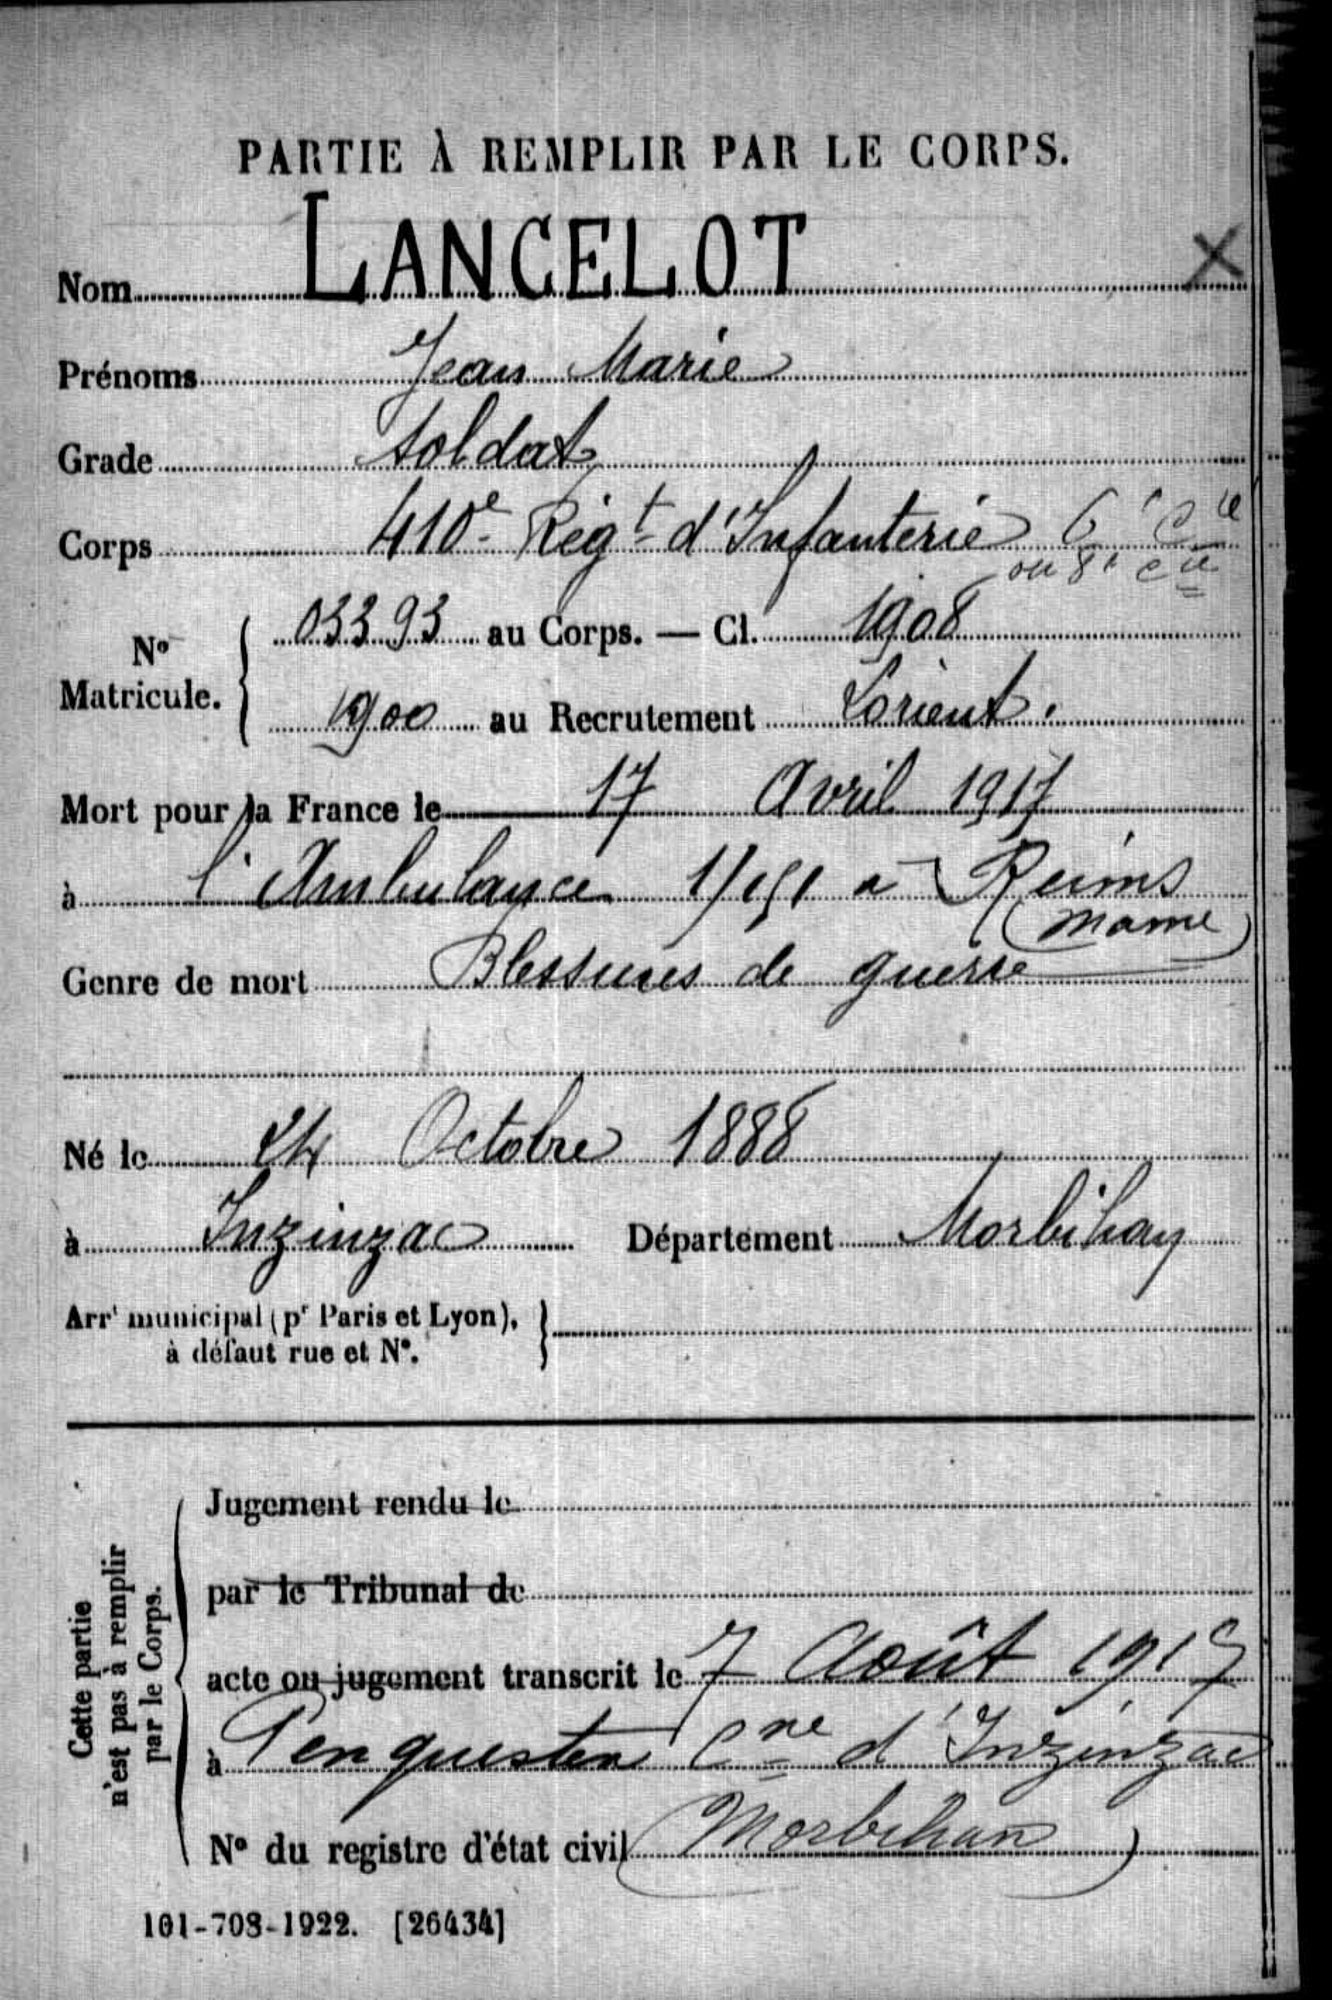 PARTIE À REMPLIR PAR LE CORPS.
Nom LANCELOT X
Prénoms Jean Marie
Grade soldat
Corps 410e Régt d'Infanterie 6e Cie
ou 8e Cie
No Matricule. { 03393 au Corps. — Cl. 1908
1900 au Recrutement Lorient.
Mort pour la France le 17 Avril 1917
à l'Ambulance 1/151 à Reims
(Marne)
Genre de mort Blessures de guerre
Né le 24 Octobre 1888
à Inzinzac Département Morbihan
Arrt municipal (pr Paris et Lyon),
à défaut rue et N°.
Cette partie
n'est pas à remplir
par le Corps.
Jugement rendu le
par le Tribunal de
acte ou jugement transcrit le 7 Août 1917
à Penquesten Cne d'Inzinzac
N° du registre d'état civil (Morbihan)
101-708-1922. [26434]